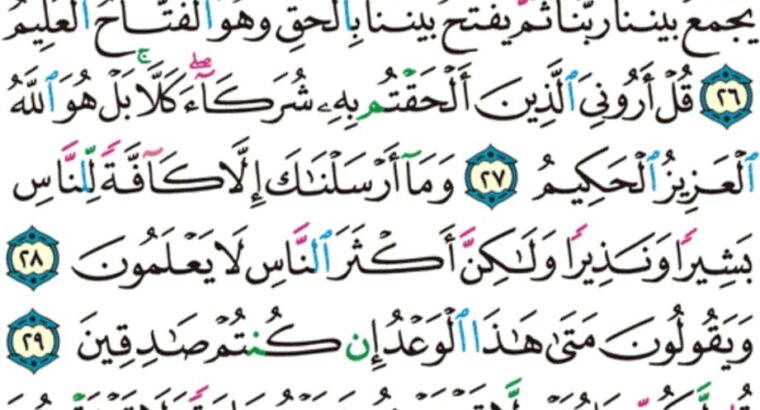 يَجْمَعُ بَيْنَنَا رَبُّنَا ثُمَّ يَفْتَحُ بَيْنَنَا بِٱلْحَقِّ وَهُوَ ٱلْفَتَّاحُ ٱلْعَلِيمُ
٢٦ قُلْ أَرُونِيَ ٱلَّذِينَ أَلْحَقْتُم بِهِۦ شُرَكَآءَۖ كَلَّاۚ بَلْ هُوَ ٱللَّهُ
ٱلْعَزِيزُ ٱلْحَكِيمُ ٢٧ وَمَآ أَرْسَلْنَٰكَ إِلَّا كَآفَّةً لِّلنَّاسِ
بَشِيرًا وَنَذِيرًا وَلَٰكِنَّ أَكْثَرَ ٱلنَّاسِ لَا يَعْلَمُونَ ٢٨
وَيَقُولُونَ مَتَىٰ هَٰذَا ٱلْوَعْدُ إِن كُنتُمْ صَٰدِقِينَ ٢٩